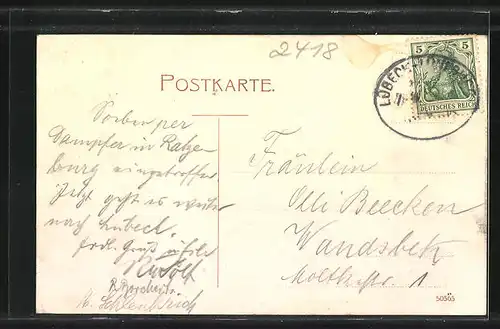 2418
POSTKARTE.
5 5
DEUTSCHES REICH
LÜBECK
Soeben per
Dampfer in Ratze-
burg eingetroffen
Jetzt geht es weiter
nach Lübeck.
Gruß
Rudolf
Fräulein
Olli Beecken
Wandsbek
Moltkestr. 1
50565